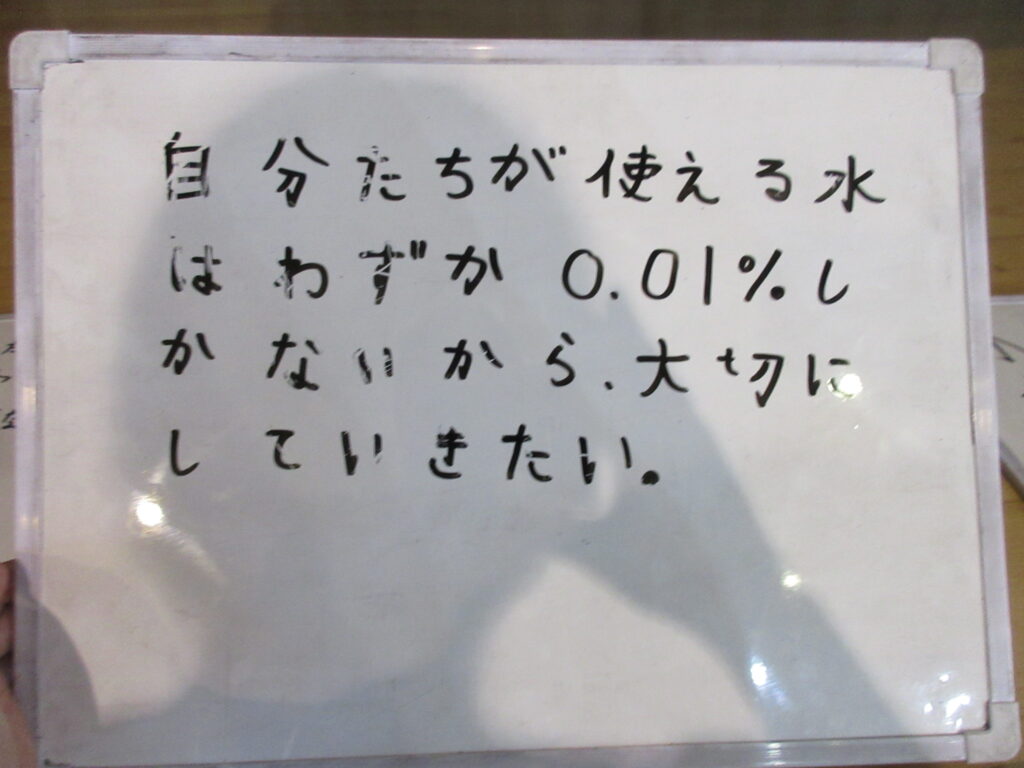 自分たちが使える水
はわずか0.01%し
かないから、大切に
していきたい。